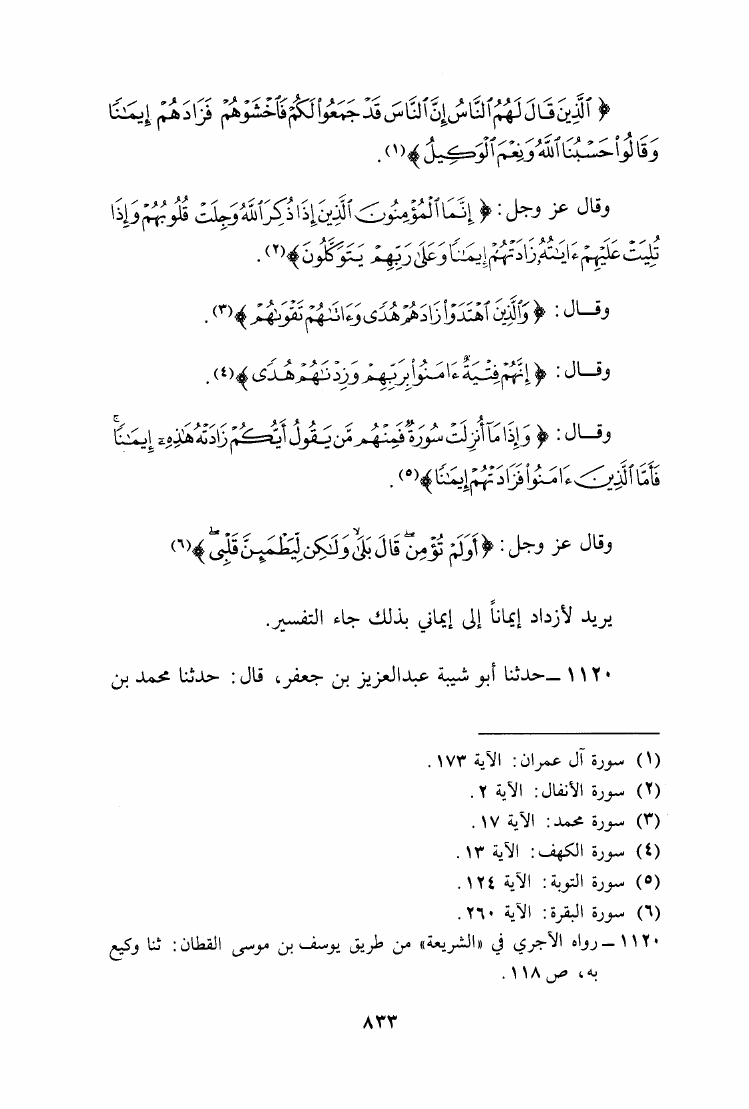 ﴿ ٱلَّذِينَ قَالَ لَهُمُ ٱلنَّاسُ إِنَّ ٱلنَّاسَ قَدْ جَمَعُواْ لَكُمْ فَٱخْشَوْهُمْ فَزَادَهُمْ إِيمَٰنًا
وَقَالُواْ حَسْبُنَا ٱللَّهُ وَنِعْمَ ٱلْوَكِيلُ ﴾(١).
وقال عز وجل: ﴿ إِنَّمَا ٱلْمُؤْمِنُونَ ٱلَّذِينَ إِذَا ذُكِرَ ٱللَّهُ وَجِلَتْ قُلُوبُهُمْ وَإِذَا
تُلِيَتْ عَلَيْهِمْ ءَايَٰتُهُۥ زَادَتْهُمْ إِيمَٰنًا وَعَلَىٰ رَبِّهِمْ يَتَوَكَّلُونَ ﴾(٢).
وقــال: ﴿ وَٱلَّذِينَ ٱهْتَدَوْاْ زَادَهُمْ هُدًى وَءَاتَىٰهُمْ تَقْوَىٰهُمْ ﴾(٣).
وقــال: ﴿ إِنَّهُمْ فِتْيَةٌ ءَامَنُواْ بِرَبِّهِمْ وَزِدْنَٰهُمْ هُدًى ﴾(٤).
وقــال: ﴿ وَإِذَا مَآ أُنزِلَتْ سُورَةٌ فَمِنْهُم مَّن يَقُولُ أَيُّكُمْ زَادَتْهُ هَٰذِهِۦٓ إِيمَٰنًا ۚ
فَأَمَّا ٱلَّذِينَ ءَامَنُواْ فَزَادَتْهُمْ إِيمَٰنًا ﴾(٥).
وقال عز وجل: ﴿ أَوَلَمْ تُؤْمِن ۖ قَالَ بَلَىٰ وَلَٰكِن لِّيَطْمَئِنَّ قَلْبِى ۖ ﴾(٦)
يريد لأزداد إيماناً إلى إيماني بذلك جاء التفسير.
١١٢٠ ــ حدثنا أبو شيبة عبدالعزيز بن جعفر، قال: حدثنا محمد بن
(١) سورة آل عمران: الآية ١٧٣.
(٢) سورة الأنفال: الآية ٢.
(٣) سورة محمد: الآية ١٧.
(٤) سورة الكهف: الآية ١٣.
(٥) سورة التوبة: الآية ١٢٤.
(٦) سورة البقرة: الآية ٢٦٠.
١١٢٠ ــ رواه الآجري في «الشريعة» من طريق يوسف بن موسى القطان: ثنا وكيع
به، ص ١١٨.
٨٣٣